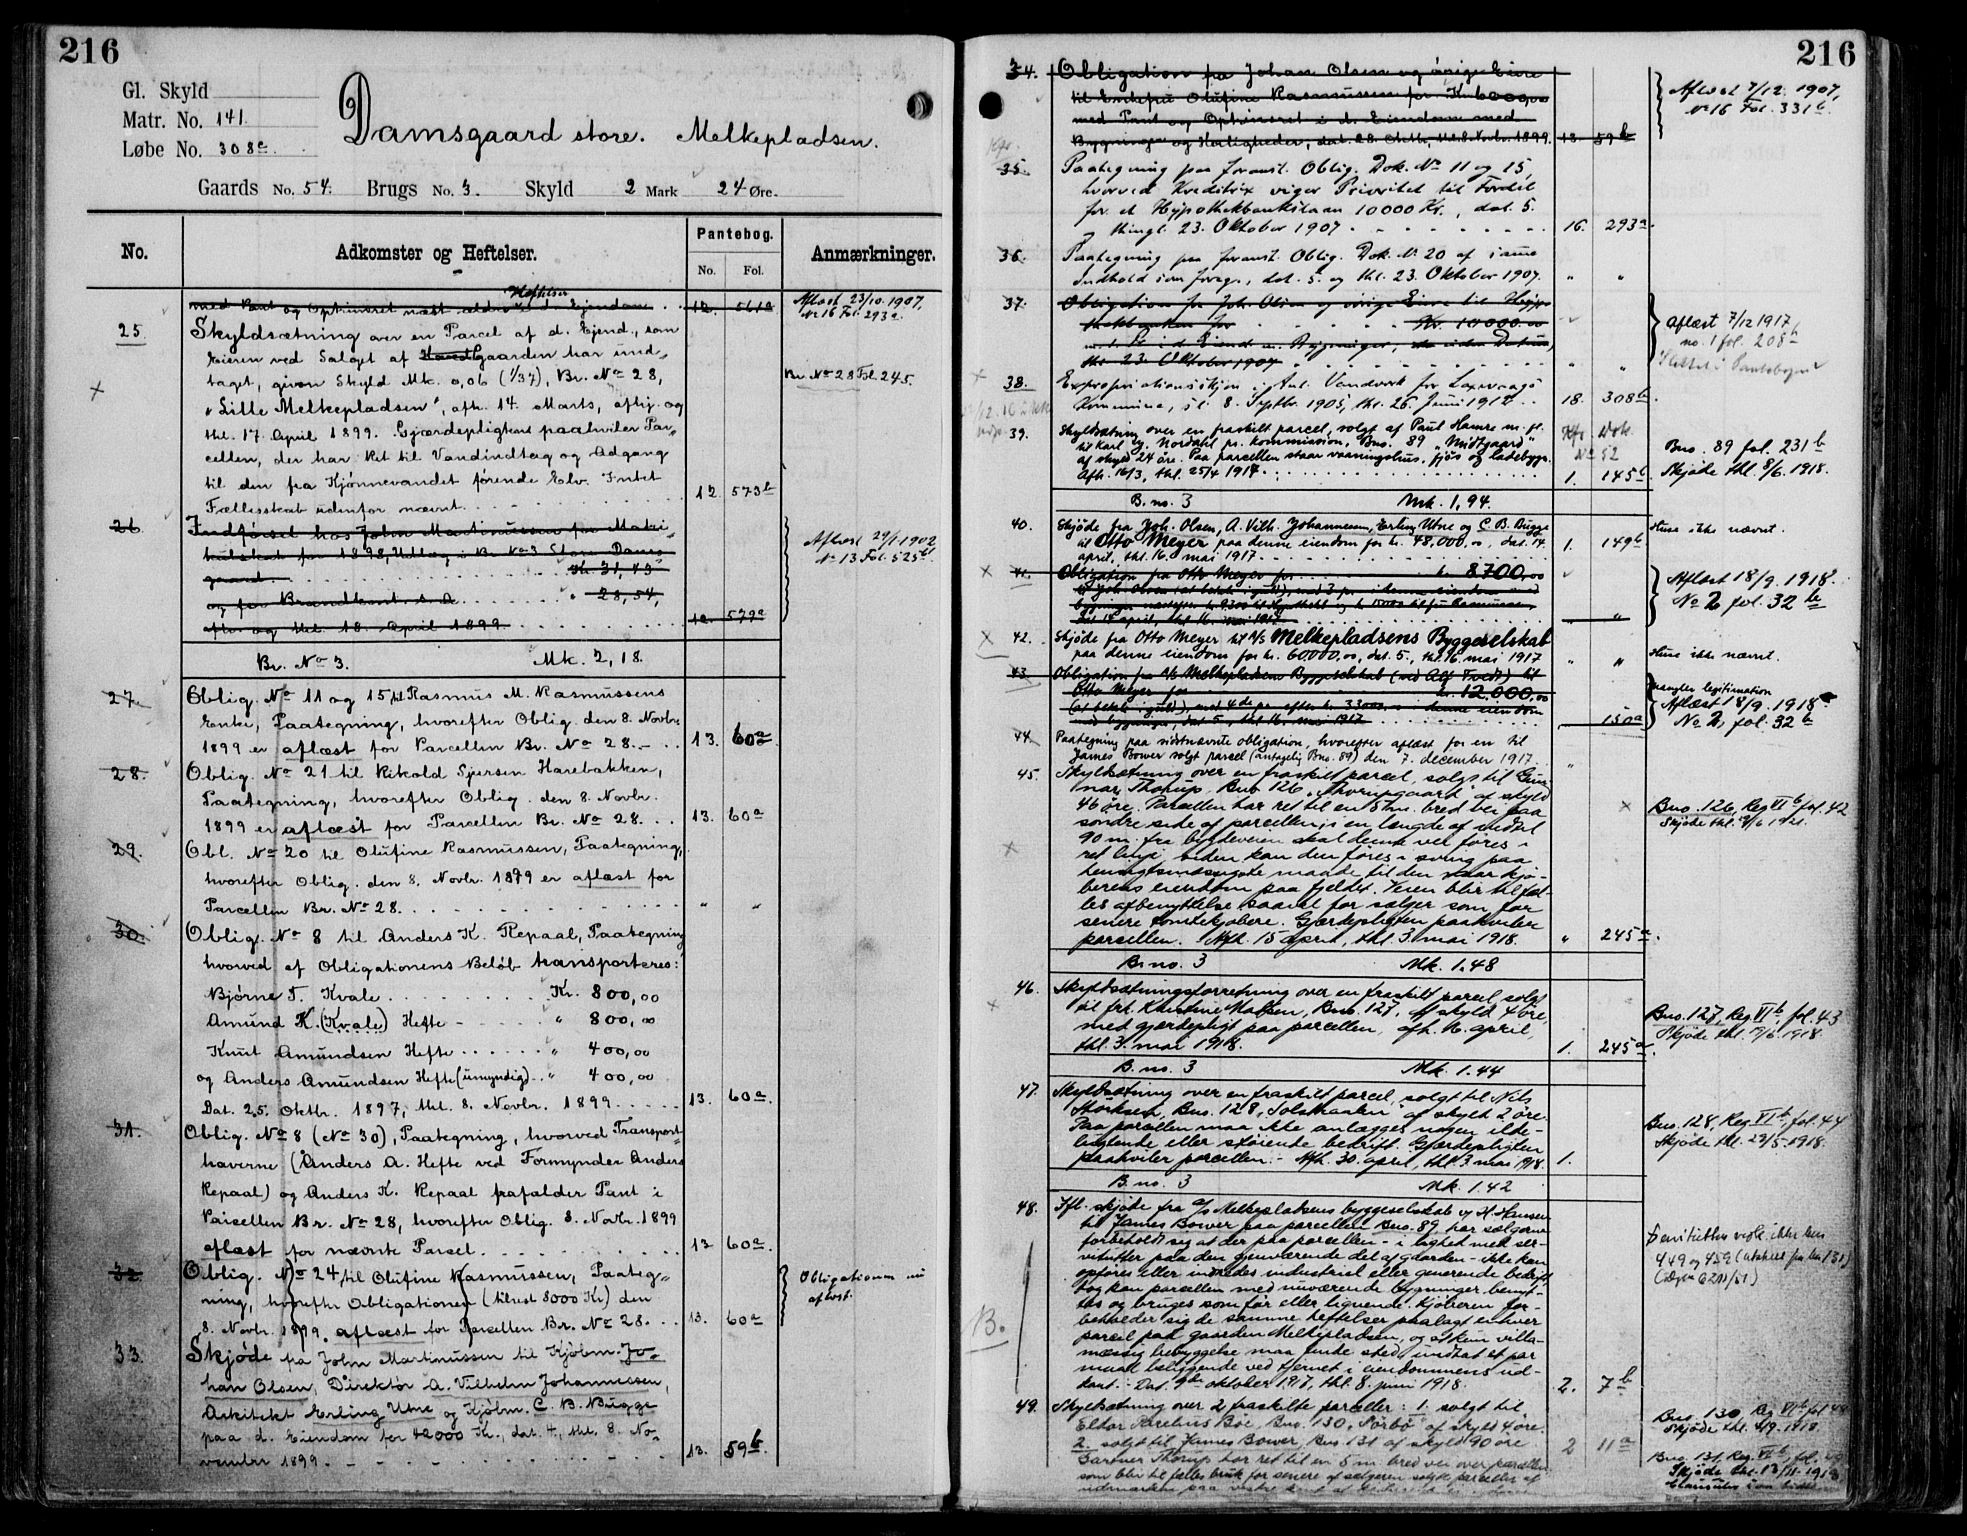 216
Gl. Skyld
Matr. No. 141.
Løbe No. 308c
Damsgaard store. Melkepladsen.
Gaards No. 54. Brugs No. 3. Skyld 2 Mark 24 Øre.
No. Adkomster og Heftelser. Pantebog. No. Fol. Anmærkninger.
Heftelser
med Pant og Optrinsret næst ældre i d. Ejendom . . 12. 561a Aflæst 23/10.1907,
No 16 Fol. 293a.
25. Skyldsætning over en Parcel af d. Ejend., som
Eieren ved Salget af Gaarden har und-
taget, given Skyld Mk. 0,06 (1/37), Br. No 28, Br. No 28 Fol. 245.
"Lille Melkepladsen", afh. 14. Marts, aflig. og
thl. 17. April 1899. Gjærdepligten paahviler Par-
cellen, der har Ret til Vandindtag og Adgang
til den fra Kjønnevandet førende Elv. Intet
Fællesskab udenfor nævnt. 12 573b
26. Indførsel hos John Martinussen for Matri-
kulskat for 1898, Udlæg i Br. No 3 Store Dams-
gaard. Kr. 31,43
og for Brandkont. s. A. " 28,54,
afh. og thl. 18. April 1899. 12. 579a
Aflæst 29/1 1902
No 13 Fol. 525b
Br. No 3. Mk. 2,18.
27. Oblig. No 11 og 15 til Rasmus M. Rasmussens
Enke, Paategning, hvorefter Oblig. den 8. Novbr.
1899 er aflæst for Parcellen Br. No 28. 13. 60a
28. Oblig. No 21 til Rikold Sjursen Harebakken,
Paategning, hvorefter Oblig. den 8. Novbr.
1899 er aflæst for Parcellen Br. No 28. 13. 60a
29. Obl. No 20 til Olufine Rasmussen, Paategning,
hvorefter Oblig. den 8. Novbr. 1899 er aflæst for
Parcellen Br. No 28. " "
30. Oblig. No 8 til Anders K. Repaal, Paategning
hvorved af Obligationens Beløb transporteres:
Bjørne T. Kvale Kr. 800,00
Amund K. (Kvale) Hefte " 800,00
Knut Amundsen Hefte " 400,00
og Anders Amundsen Hefte (umyndig) " 400,00
Dat. 25. Oktbr. 1897, thl. 8. Novbr. 1899 13. 60a.
31. Oblig. No 8 (No 30), Paategning, hvorved Transport-
haverne (Anders A. Hefte ved Formynder Anders
Repaal) og Anders K. Repaal frafalder Pant i
Parcellen Br. No 28, hvorefter Oblig. 8. Novbr. 1899
aflæst for nævnte Parcel. 13 60a.
32. Oblig. No 24 til Olufine Rasmussen, Paateg-
ning, hvorefter Obligationen (tilrest 8000 Kr) den
8. Novbr. 1899 aflæst for Parcellen Br. No 28. 13. 60a
Obligationen nu
aflæst.
33. Skjøde fra John Martinussen til Kjøbm. Jo-
han Olsen, Direktør A. Vilhelm Johannessen,
Arkitekt Erling Utne og Kjøbm. C. B. Bugge
paa d. Eiendom for 42000 Kr., dat. 4., thl. 8. No-
vember 1899. 13. 59b.
216
34. Obligation fra Johan Olsen og øvrige Eiere
til Enkefru Olufine Rasmussen for Kr. 6000,00
med Pant og Optrinsret i d. Eiendom med
Bygninger og Herligheder, dat. 28. Oktbr., thl. 8. Novbr. 1899. 13. 59b
Aflæst 7/12. 1907,
No 16 Fol. 331b.
35. Paategning paa foranst. Oblig. Dok. No 11 og 15,
hvorved Kreditrix viger Prioritet til Fordel
for et Hypothekbankslaan 10000 Kr., dat. 5.
og thingl. 23. Oktober 1907. 16. 293a.
36. Paategning paa foranst. Oblig. Dok. No 20 af samme
Indhold som forrige, dat. 5. og thl. 23. Oktober 1907. " "
37. Obligation fra Joh. Olsen og øvrige Eiere til Hypo-
thekbanken for Kr. 10000.00
thl. 23. Oktober 1907 " "
Aflæst 7/12 1917
no. 1 fol. 208b
38. Expropriationsskjøn i Anl. Vandverk for Laxevaags
Kommune, sl. 8. Septbr. 1905, thl. 26. Juni 1912 18. 308b.
39. Skyldsætning over en fraskilt parcel, solgt af Paul Hamre m. fl.
til Karl Nordahl pr. kommission, Bno. 89 "Midtgaard"
af skyld 24 øre. Paa parcellen staar vaaningshus, fjøs og ladebygn.
Afh. 16/3, thl. 25/4 1917. 1. 145b
Bno. 89 fol. 231b
Skjøde thl. 8/6. 1918.
B. no. 3 Mk. 1,94.
40. Skjøde fra Joh. Olsen, A. Vilh. Johannessen, Erling Utne og C. B. Bugge
til Otto Meyer paa denne eiendom for kr. 48,000,00, dat. 14.
april, thl. 16. mai 1917. 1. 149b
Huse ikke nævnt.
41. Obligation fra Otto Meyer for kr. 8700,00
dat. 14 april, thl. 16. mai 1917. " "
Aflæst 18/9. 1918.
No 2 fol. 32b
42. Skjøde fra Otto Meyer til A/S Melkepladsens Byggeselskab
paa denne eiendom for kr. 60,000,00, dat. 5., thl. 16. mai 1917 " "
Huse ikke nævnt.
43. Obligation fra A/S Melkepladsens Byggeselskab (ved Alf Tvedt) til
Otto Meyer for kr. 12,000,00
(at betale i guld), med 4de pr. efter kr. 33000,00 i denne eiendom
med bygninger, dat. 5., thl. 16. mai 1917. 150a
mangler legitimation
Aflæst 18/9. 1918
No 2, fol. 32b
44. Paategning paa sidstnævnte obligation, hvorefter aflæst for en til
James Bower solgt parcel (antagelig Bno. 89) den 7. december 1917. "
45. Skyldsætning over en fraskilt parcel, solgt til Gun-
nar Thorup, Bno 126 "Thorupgaard" af skyld
46 øre. Parcellen har ret til en 5 m. bred vei paa
søndre side af parcellen; i en længde af indtil
90 m. fra bygdeveien skal denne vei føres i
ret linje, siden kan den føres i sving paa
hensigtsmæssigste maade til den kjø-
berens eiendom paa fjeldet. Veien blir til fæl-
les afbenyttelse saavel for sælger som for
senere tomtekjøbere. Gjærdepligten paahviler
parcellen. Afh. 15 april, thl. 3. mai 1918. " 245a.
Bno. 126, Reg VIb fol. 42
B. no. 3 Mk. 1.48
46. Skyldsætningsforretning over en fraskilt parcel solgt
til frk. Kristine Madsen, Bno. 127, af skyld 4 øre,
med gjærdepligt paa parcellen, afh. 16. april,
thl. 3. mai 1918. 1. 245a.
Bno. 127, Reg VIb fol. 43
B. no. 3 Mk. 1.44
47. Skyldsætning over en fraskilt parcel, solgt til Nils
Storksen, Bno. 128 "Solstraalen" af skyld 2 øre.
Paa parcellen maa ikke anlægges nogen ilde-
lugtende eller støiende bedrift. Gjærdepligten
paahviler parcellen. Afh. 30. april, thl. 3. mai 1918. 1.
Bno. 128, Reg VIb, fol. 44
Skjøde thl. 23/5-1918.
B. no. 3 Mk. 1.42
48. Ifl. skjøde fra A/S Melkepladsens byggeselskab og H. Hansen
til James Bower paa parcellen Bno. 89 har sælgerne
forbeholdt sig at der paa parcellen - i lighed med ser-
vitutter paa den gjenværende del af gaarden - ikke kan
opføres eller indredes industriel eller generende bedrift,
dog kan parcellen med nuværende bygninger benyt-
tes og bruges som før eller lignende. Kjøberen for-
beholder sig de samme heftelser paalagt enhver
parcel paa gaarden Melkepladsen, og at kun villa-
mæssig bebyggelse maa finde sted, undtat et par
maal beliggende ved tjernet i eiendommens ud-
kant. Dat. 9de oktober 1917, thl. 8. juni 1918. 2. 7b
449 og 459
B.
49. Skyldsætning over 2 fraskilte parceller: 1. solgt til
Bøe, Bno. 130, "Norbo" af skyld 4 øre.
2. solgt til James Bower, Bno. 131 af skyld 90 øre. 2 11a
Gartner Thorup har ret til en 5 m bred vei over parcellen
som blir til fælles bruk for senere af sælgeren solgte parceller af
Bno. 130 Reg VIb fol 48
Bno. 131, Reg. VIb, fol. 49
Skjøde thl. 13/11-1918